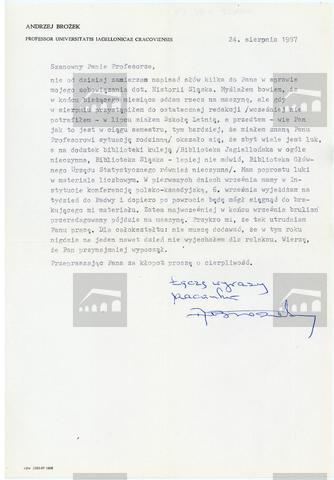 ANDRZEJ BROŻEK
PROFESSOR UNIVERSITATIS IAGELLONICAE CRACOVIENSIS
24. sierpnia 1987
Szanowny Panie Profesorze,
nie od dzisiaj zamierzam napisać słów kilka do Pana w sprawie
mojego zobowiązania dot. Historii Śląska. Myślałem bowiem, że
w końcu bieżącego miesiąca oddam rzecz na maszynę, ale gdy
w sierpniu przystąpiłem do ostatecznej redakcji /wcześniej nie
potrafiłem - w lipcu miałem Szkołę Letnią, a przedtem - wie Pan
jak to jest w ciągu semestru, tym bardziej, że miałem znaną Panu
Profesorowi sytuację rodzinną/ okazało się, że zbyt wiele jest luk,
a na dodatek biblioteki kuleją /Biblioteka Jagiellońska w ogóle
nieczynna, Biblioteka Śląska - lepiej nie mówić, Biblioteka Głów-
nego Urzędu Statystycznego również nieczynna/. Mam poprostu luki
w materiale liczbowym. W pierwszych dniach września mamy w In-
stytucie konferencję polsko-kanadyjską, 6. września wyjeżdżam na
tydzień do Padwy i dopiero po powrocie będę mógł sięgnąć do bra-
kującego mi materiału. Zatem najwcześniej w końcu września brulion
przeredagowany pójdzie na maszynę. Przykro mi, że tak utrudniam
Panu pracę. Dla całokształtu: nie muszę dodawać, że w tym roku
nigdzie na jeden nawet dzień nie wyjechałem dla relaksu. Wierzę,
że Pan przynajmniej wypoczął.
Przepraszając Pana za kłopot proszę o cierpliwość.
Łączę wyrazy
szacunku